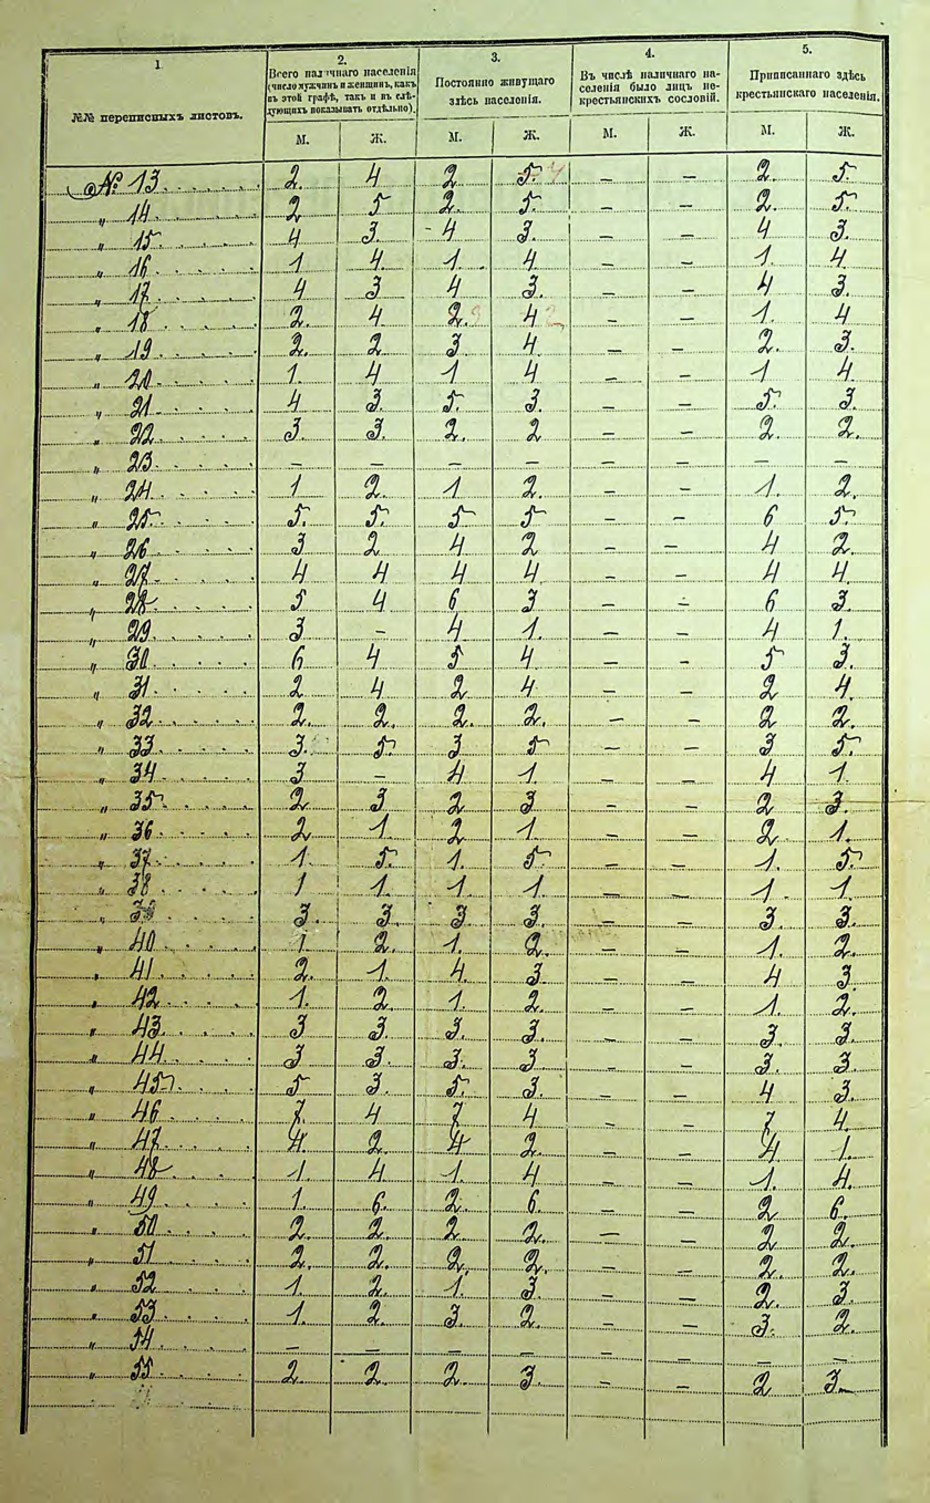 1
№№ переписныхъ листовъ.
2.
Всего наличнаго населенія
(число мужчинъ и женщинъ, какъ
въ этой графѣ, такъ и въ слѣ-
дующихъ показывать отдѣльно).
3.
Постоянно живущаго
здѣсь населенія.
4.
Въ числѣ наличнаго на-
селенія было лицъ не-
крестьянскихъ сословій.
5.
Приписаннаго здѣсь
крестьянскаго населенія.
М. Ж. М. Ж. М. Ж. М. Ж.
№ 13 2. 4 2 5. 4 – – 2. 5.
„ 14 2 5 2. 5. – – 2. 5.
„ 15. 4 3. 4 3. – – 4 3.
„ 16 1 4. 1. 4. – – 1. 4
„ 17 4 3 4 3. – – 4 3.
„ 18 2. 4 2. 3 4 2 – – 1. 4
„ 19 2. 2 3 4. – – 2. 3.
„ 20 1. 4 1 4 – – 1 4.
„ 21 4 3. 5. 3. – – 5. 3.
„ 22 3. 3. 2. 2 – – 2. 2.
„ 23 – – – – – – – –
„ 24 1 2. 1 2. – – 1. 2.
„ 25 5. 5. 5 5 – – 6 5.
„ 26 3 2 4 2 – – 4 2.
„ 27 4 4 4 4 – – 4 4.
„ 28 5 4 6 3 – – 6 3
„ 29 3 – 4 1. – – 4 1.
„ 30 6 4 5 4 – – 5 3.
„ 31 2 4 2 4 – – 2 4.
„ 32 2. 2. 2. 2. – – 2 2.
„ 33 3. 5. 3 5 – – 3 5.
„ 34 3 – 4 1. – – 4 1.
„ 35 2 3 2 3 – – 2 3.
„ 36 2 1. 2 1. – – 2 1.
„ 37 1. 5. 1. 5. – – 1. 5.
„ 38 1 1. 1. 1. – – 1. 1.
„ 39 3. 3. 3. 3. – – 3. 3.
„ 40 1. 2. 1. 2. – – 1. 2.
„ 41 2. 1. 4. 3. – – 4 3.
„ 42 1. 2. 1. 2. – – 1. 2.
„ 43 3 3. 3. 3. – – 3. 3.
„ 44 3 3. 3. 3. – – 3. 3.
„ 45 5 3. 5. 3. – – 4 3.
„ 46 7. 4 7 4 – – 7 4.
„ 47 4. 2. 4 2. – – 4 1.
„ 48 1. 4 1. 4 – – 1. 4.
„ 49 1. 6. 2. 6. – – 2 6.
„ 50 2. 2. 2 2. – – 2 2.
„ 51 2. 2. 2. 2. – – 2. 2.
„ 52 1. 2. 1. 3. – – 2. 3.
„ 53 1. 2. 3. 2. – – 3. 2.
„ 54 – – – – – – – –
„ 55 2. 2 2. 3. – – 2 3.